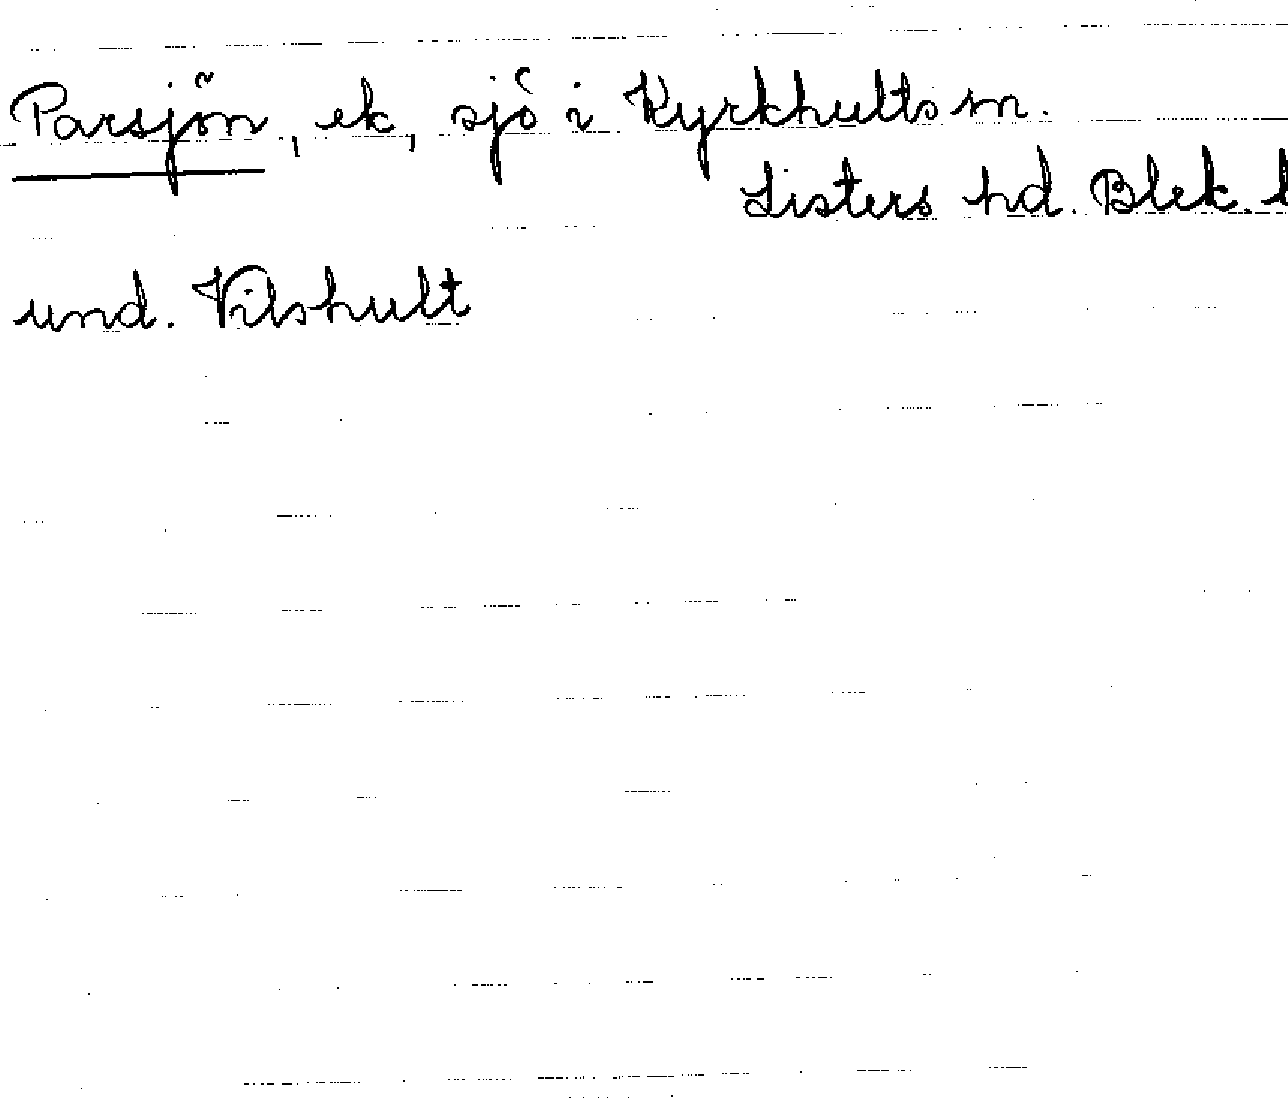 Parsjön, ek, sjö i Kyrkhults sn.
Listers hd. Blek.
und. Vilshult